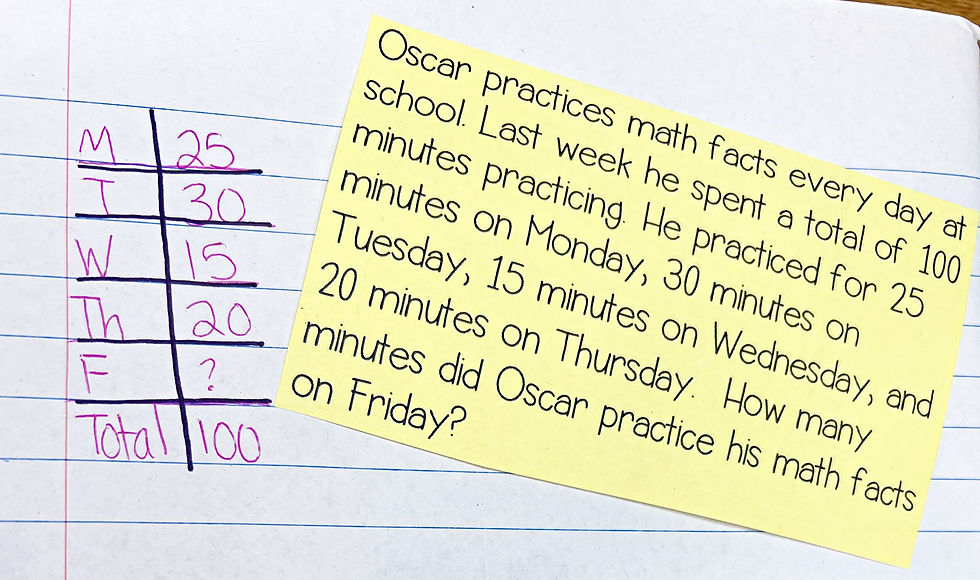 M 25
T 30
W 15
Th 20
F ?
Total 100
Oscar practices math facts every day at
school. Last week he spent a total of 100
minutes practicing. He practiced for 25
minutes on Monday, 30 minutes on
Tuesday, 15 minutes on Wednesday, and
20 minutes on Thursday. How many
minutes did Oscar practice his math facts
on Friday?